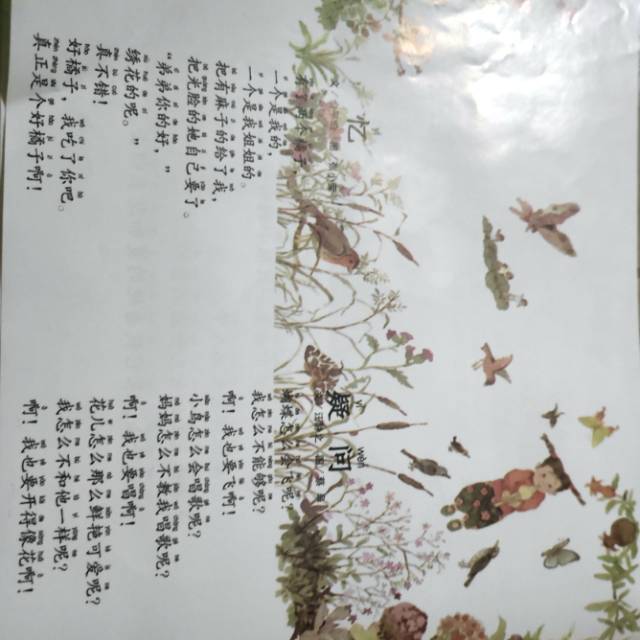 忆
一个是我的
一个是我姐姐的。
把有麻子的给了我,
把光脸的她自己要了。
“弟弟你的好,
绣花的呢。”
真不错!
好橘子,我吃了你吧。
真正是个好橘子啊!
疑问
我怎么不能够呢?
啊!我也要飞啊!
小鸟怎么会唱歌呢?
妈妈怎么不教我唱歌呢?
啊!我也要唱啊!
花儿怎么那么鲜艳可爱呢?
我怎么不和他一样呢?
啊!我也要开得像花啊!